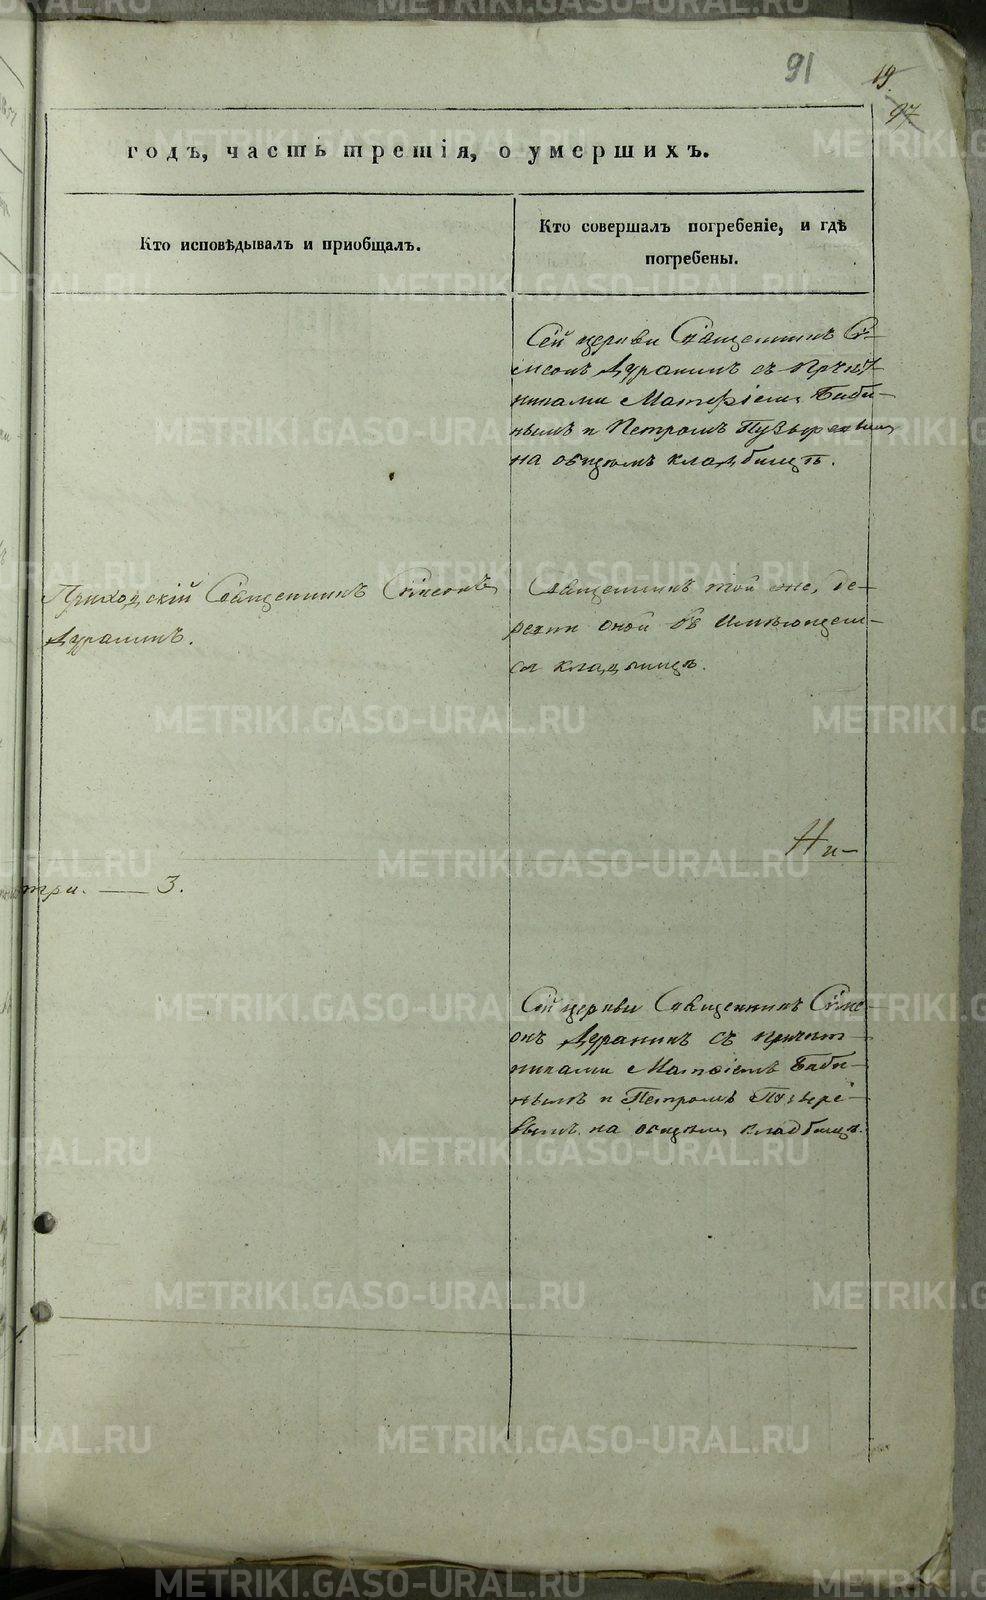 91
19.
97
годъ, часть третія, о умершихъ.
Кто исповѣдывалъ и приобщалъ.
Кто совершалъ погребеніе, и гдѣ
погребены.
Сей церкви Священникъ Сѵ-
меонъ Дурагинъ съ Причет-
никами Матѳіемъ Баби-
нымъ и Петромъ Пузыревымъ
на общемъ кладбищѣ.
Приходскій Священникъ Сѵмеонъ
Священникъ той же, де-
ревни оной въ имѣющем-
ся кладбищѣ.
Ни-
три. — 3.
Сей церкви Священникъ Сѵме-
онъ съ причет-
никами Матѳіемъ Баби-
нымъ и Петромъ Пузыре-
вымъ на общемъ кладбищѣ.
METRIKI.GASO-URAL.RU